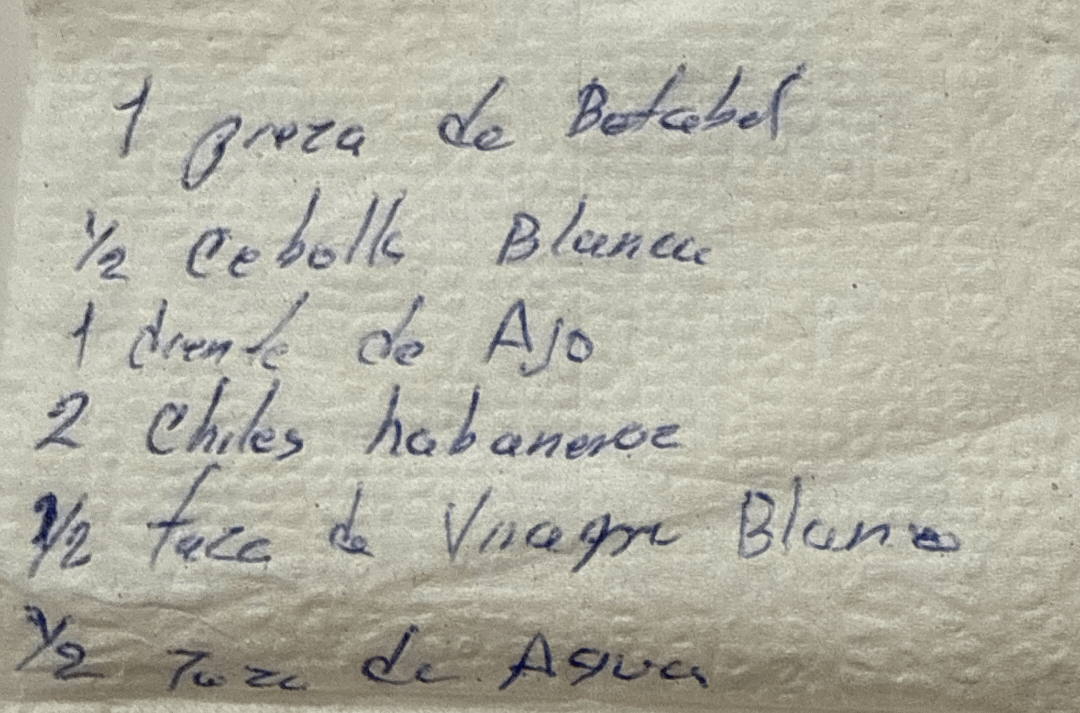 1 pieza de Betabel
1/2 Cebolla Blanca
1 diente de Ajo
2 Chiles habaneros
1/2 taza de Vinagre Blanco
1/2 Taza de Agua